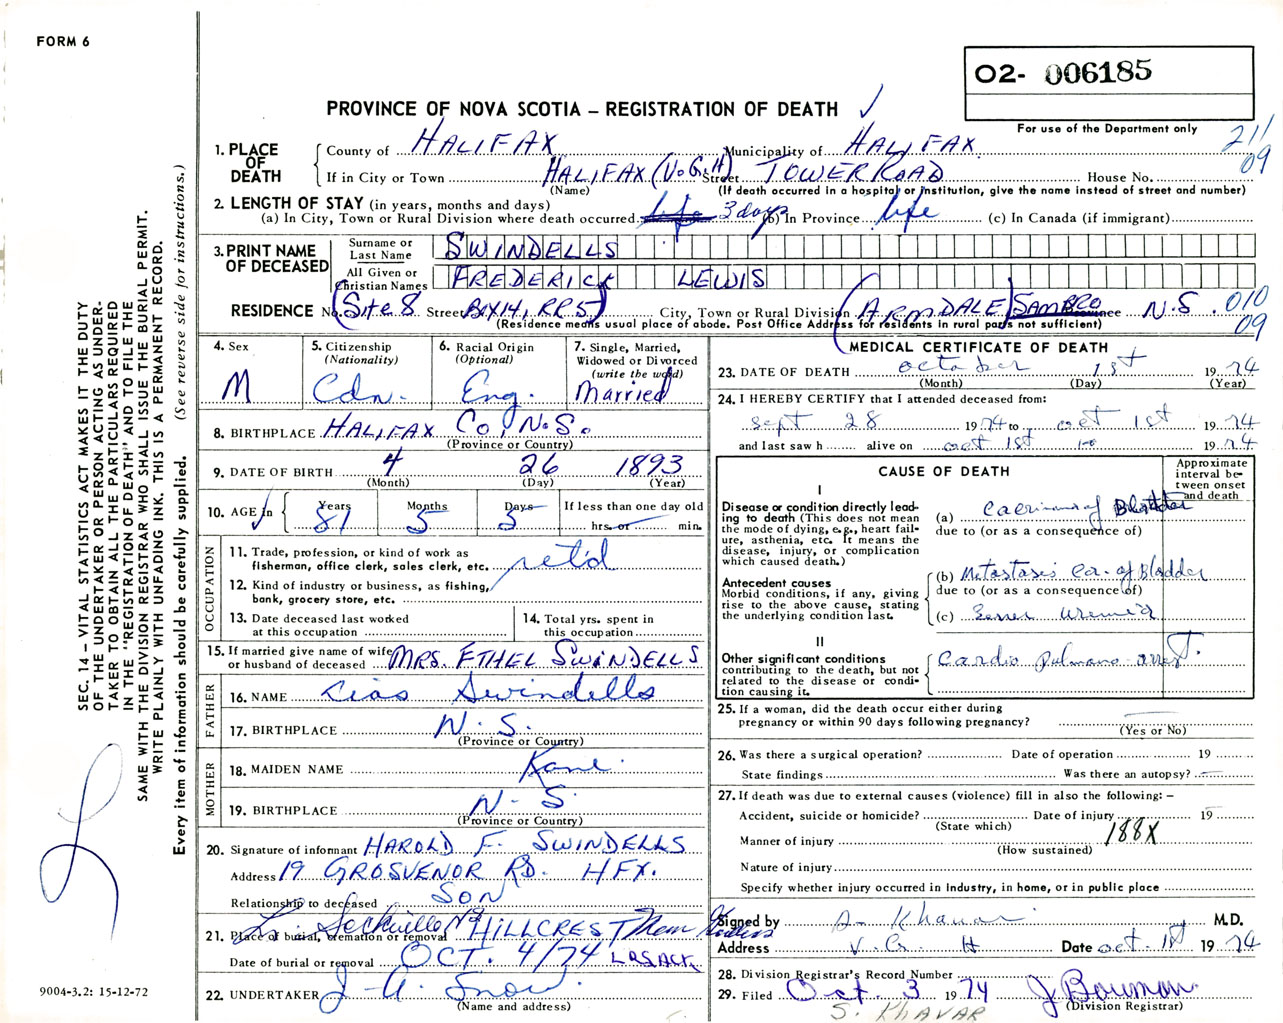 FORM 6
O2- 006185
PROVINCE OF NOVA SCOTIA – REGISTRATION OF DEATH ✓
For use of the Department only
211
09
1. PLACE OF DEATH
County of HALIFAX Municipality of HALIFAX
If in City or Town HALIFAX (V.G.H) Street TOWER ROAD House No.
(Name) (If death occurred in a hospital or institution, give the name instead of street and number)
2. LENGTH OF STAY (in years, months and days)
(a) In City, Town or Rural Division where death occurred life 3 days (b) In Province life (c) In Canada (if immigrant)
3. PRINT NAME OF DECEASED
Surname or Last Name SWINDELLS
All Given or Christian Names FREDERICK LEWIS
RESIDENCE No. (Site 8 Street Box 14, RR5) City, Town or Rural Division (ARMDALE) SAMBRO Province N.S. 010
09
(Residence means usual place of abode. Post Office Address for residents in rural parts not sufficient)
4. Sex
M
5. Citizenship
(Nationality)
Cdn.
6. Racial Origin
(Optional)
Eng.
7. Single, Married,
Widowed or Divorced
(write the word)
Married
8. BIRTHPLACE HALIFAX Co., N.S.
(Province or Country)
9. DATE OF BIRTH 4 26 1893
(Month) (Day) (Year)
10. AGE in Years Months Days If less than one day old
81 5 5 hrs. or min.
OCCUPATION
11. Trade, profession, or kind of work as
fisherman, office clerk, sales clerk, etc. ret'd
12. Kind of industry or business, as fishing,
bank, grocery store, etc.
13. Date deceased last worked
at this occupation
14. Total yrs. spent in
this occupation
15. If married give name of wife
or husband of deceased MRS. ETHEL SWINDELLS
FATHER
16. NAME Swindells
17. BIRTHPLACE N.S.
(Province or Country)
MOTHER
18. MAIDEN NAME Kane
19. BIRTHPLACE N.S.
(Province or Country)
20. Signature of informant HAROLD F. SWINDELLS
Address 19 GROSVENOR RD. HFX.
Relationship to deceased SON
21. Place of burial, cremation or removal Sackville NS HILLCREST Mem Gardens
Date of burial or removal OCT. 4/74
22. UNDERTAKER J. A. Snow.
(Name and address)
MEDICAL CERTIFICATE OF DEATH
23. DATE OF DEATH october 1st 19 74
(Month) (Day) (Year)
24. I HEREBY CERTIFY that I attended deceased from:
Sept 28 1974 to oct 1st 19 74
and last saw h alive on oct 1st 19 74
CAUSE OF DEATH
Approximate interval between onset and death
I
Disease or condition directly leading to death (This does not mean the mode of dying, e.g., heart failure, asthenia, etc. It means the disease, injury, or complication which caused death.)
(a) Carcinoma of Bladder
due to (or as a consequence of)
Antecedent causes
Morbid conditions, if any, giving rise to the above cause, stating the underlying condition last.
(b) Metastasis Ca. of Bladder
due to (or as a consequence of)
(c) uremia
II
Other significant conditions
contributing to the death, but not related to the disease or condition causing it.
Cardio pulmano arrest.
25. If a woman, did the death occur either during
pregnancy or within 90 days following pregnancy?
(Yes or No)
26. Was there a surgical operation? Date of operation 19
State findings Was there an autopsy?
27. If death was due to external causes (violence) fill in also the following: –
Accident, suicide or homicide? Date of injury 19
(State which)
188X
Manner of injury
(How sustained)
Nature of injury
Specify whether injury occurred in industry, in home, or in public place
Signed by Khavar M.D.
Address V. G. H Date oct 1st 19 74
28. Division Registrar's Record Number
29. Filed Oct. 3 1974 J Bowman
(Division Registrar)
S. KHAVAR
SEC. 14 – VITAL STATISTICS ACT MAKES IT THE DUTY
OF THE UNDERTAKER OR PERSON ACTING AS UNDER-
TAKER TO OBTAIN ALL THE PARTICULARS REQUIRED
IN THE "REGISTRATION OF DEATH" AND TO FILE THE
SAME WITH THE DIVISION REGISTRAR WHO SHALL ISSUE THE BURIAL PERMIT.
WRITE PLAINLY WITH UNFADING INK. THIS IS A PERMANENT RECORD.
Every item of information should be carefully supplied. (See reverse side for instructions.)
9004-3.2: 15-12-72